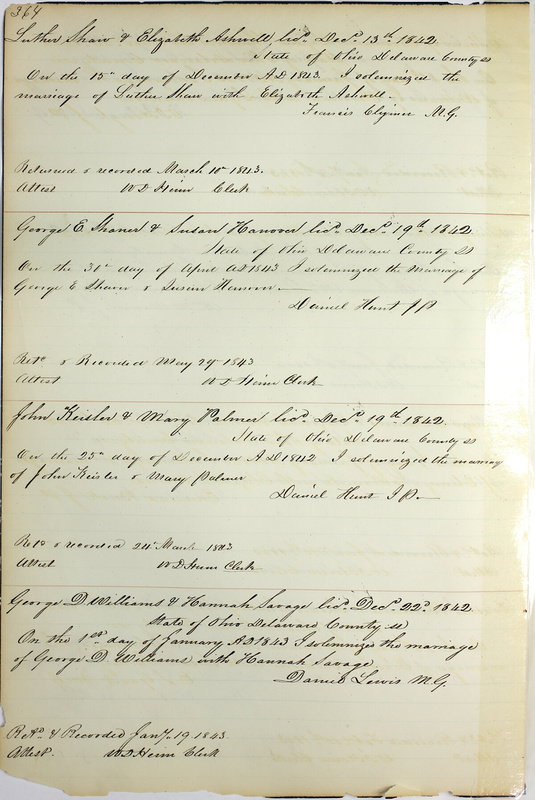 364
Luther Shaw & Elizabeth Ashwell lic. Decr. 13th 1842
State of Ohio Delaware County ss
On the 15th day of December AD 1843 I solemnized the
marriage of Luther Shaw with Elizabeth Ashwell.
Francis Clymer M.G.
Returned & recorded March 10th 1843.
Attest W D Heim Clerk
George E Shaner & Susan Hanover lic. Decr. 19th 1842
State of Ohio Delaware County ss
On the 31st day of April AD 1843 I solemnized the marriage of
George E Shaner & Susan Hanover
Daniel Hunt JP
Retd & Recorded May 29th 1843
Attest W D Heim Clerk
John Keisler & Mary Palmer lic. Decr. 19th 1842
State of Ohio Delaware County ss
On the 25th day of December AD 1842 I solemnized the marriag
of John Keisler & Mary Palmer
Daniel Hunt J P.
Retd & recorded 24th March 1843
Attest W D Heim Clerk
George D. Williams & Hannah Savage lic. Decr. 22d. 1842
State of Ohio Delaware County ss
On the 1st day of January AD 1843 I solemnizes the marriage
of George D. Williams with Hannah Savage
Daniel Lewis M.G.
Retd. & Recorded Jany. 19. 1843.
Attest. W D Heim Clerk